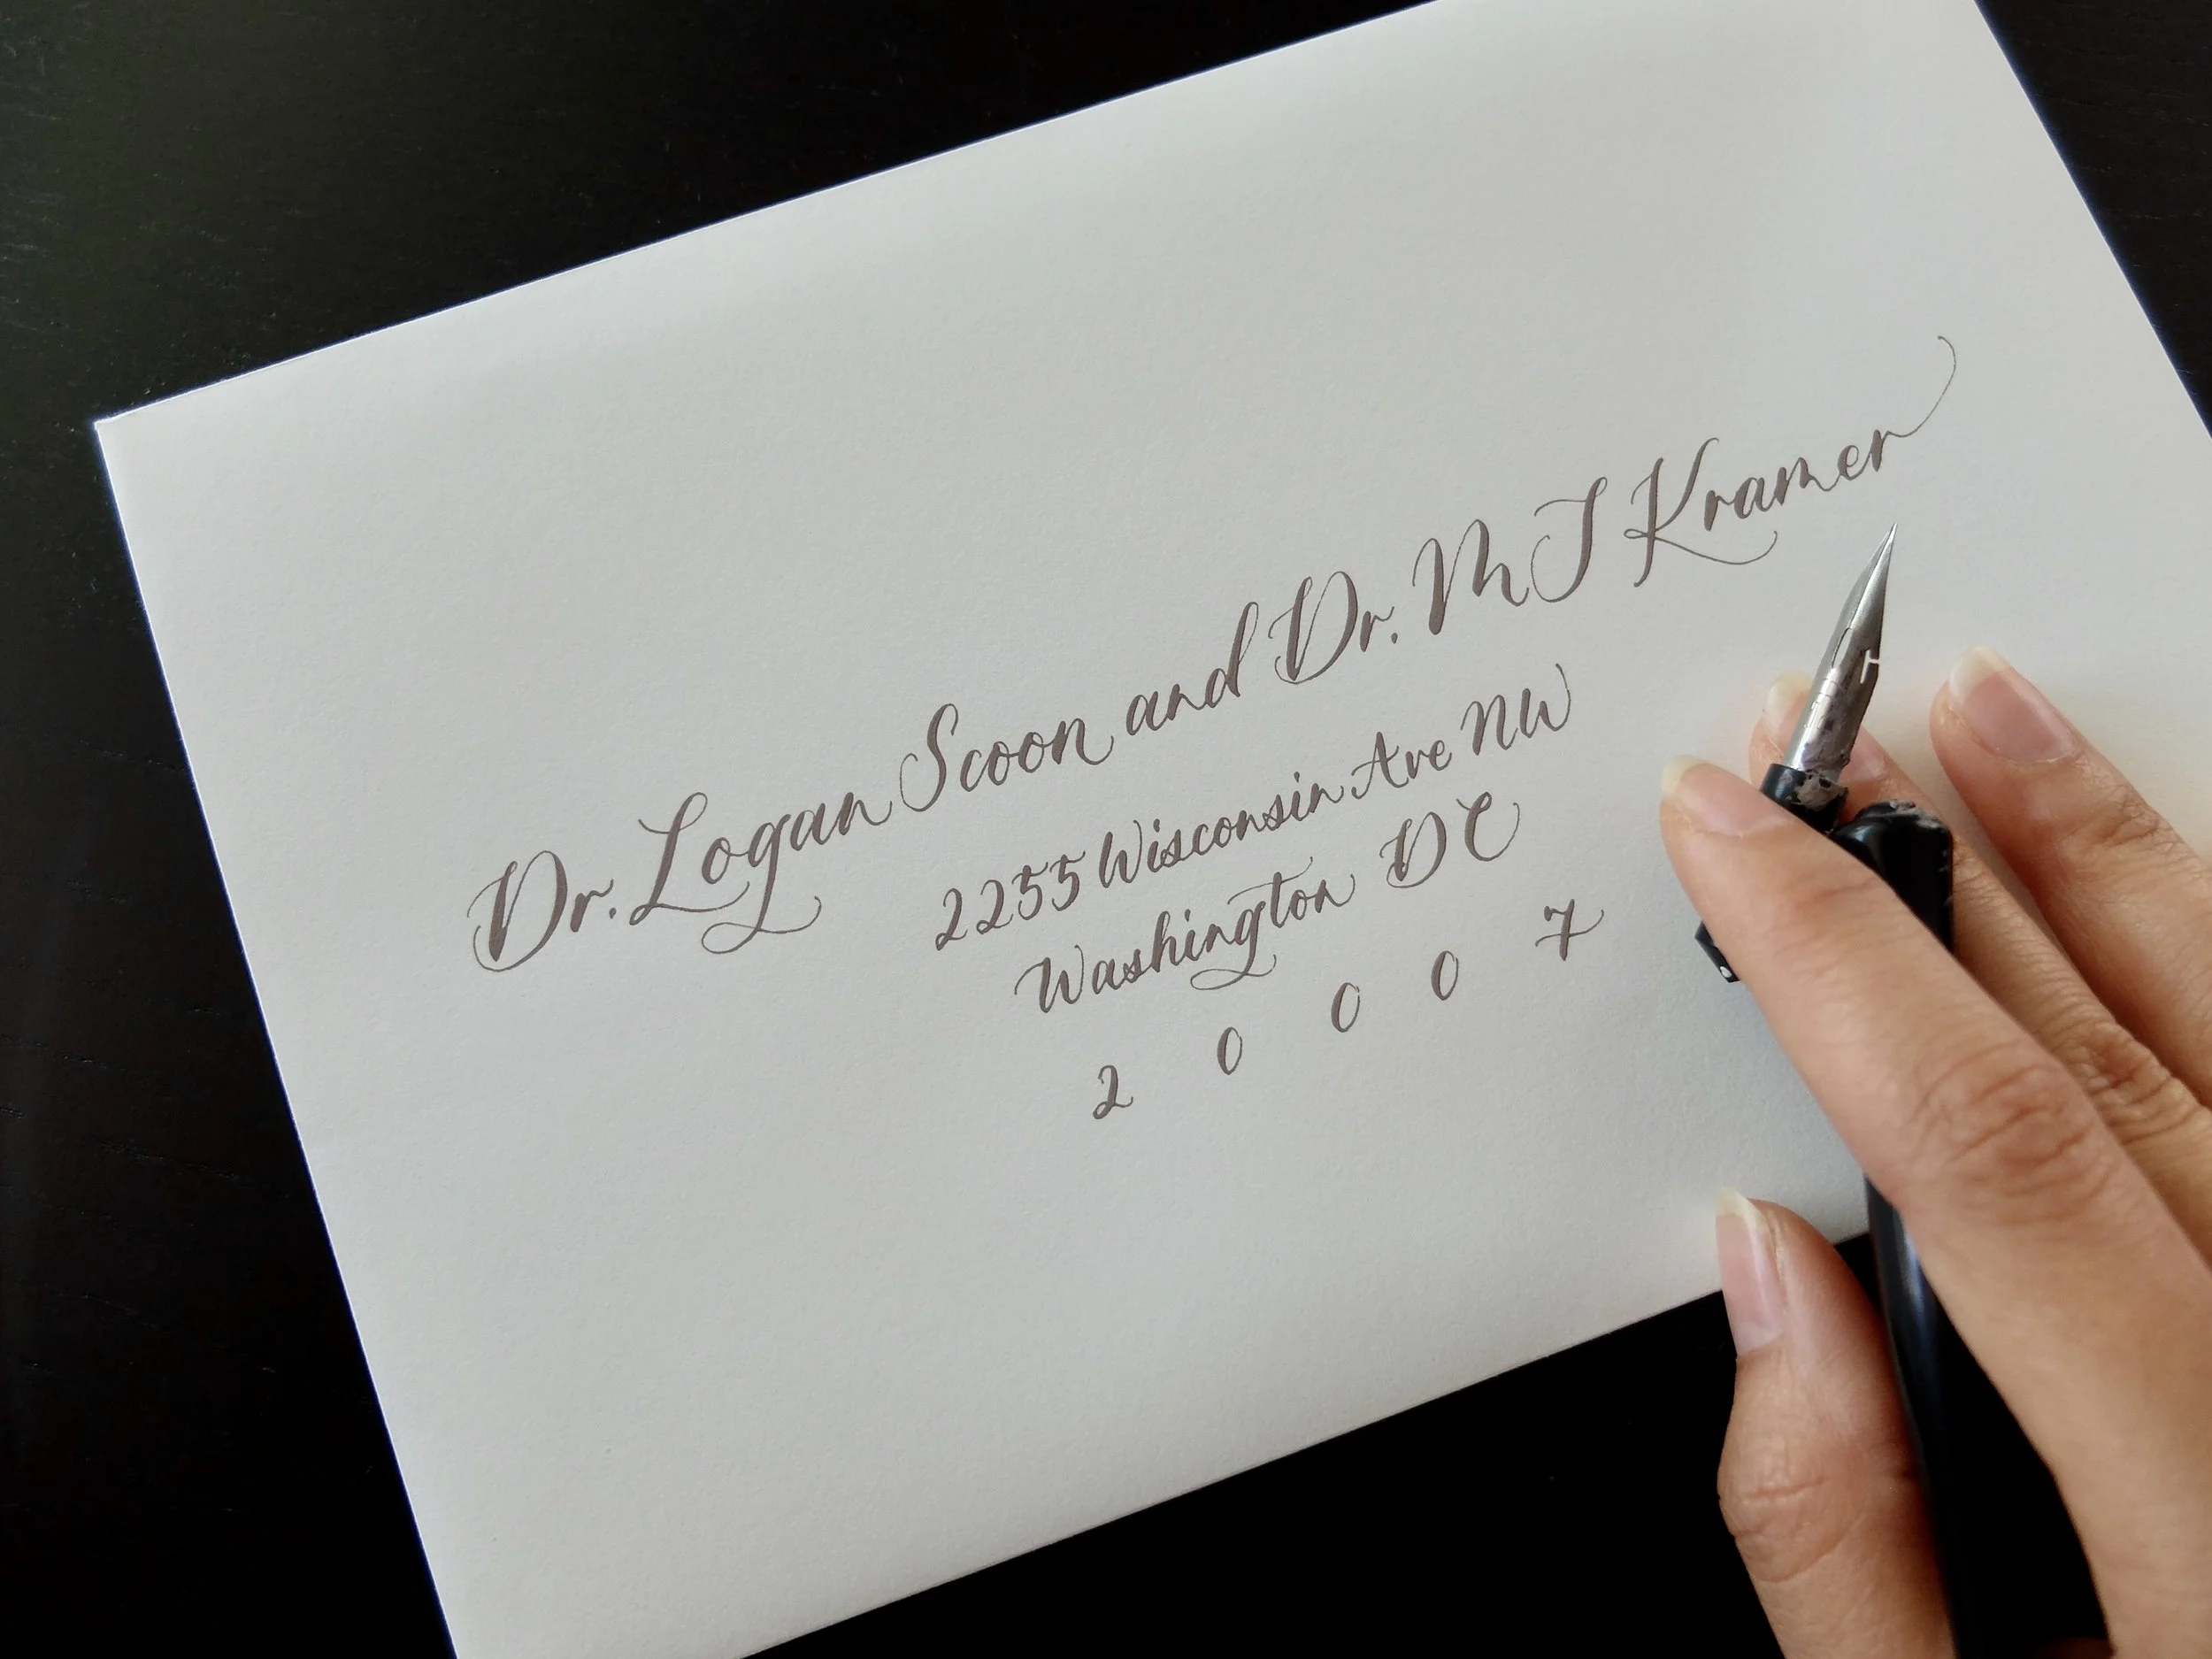 Dr. Logan Scoon and Dr. M J Kramer
2255 Wisconsin Ave NW
Washington DC
2 0 0 0 7